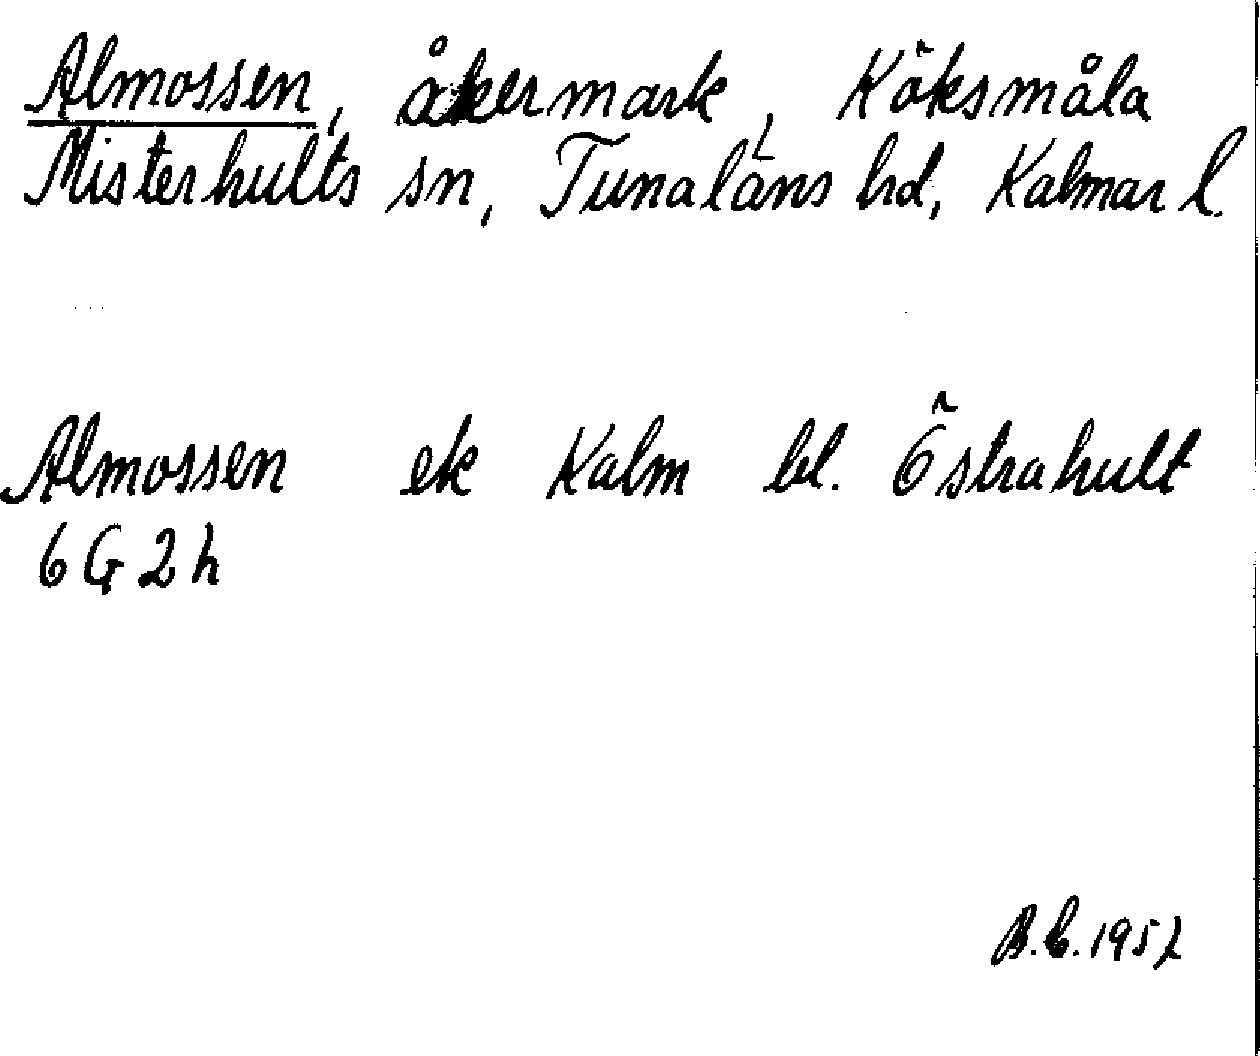 Almossen, åkermark, Köksmåla
Misterhults sn, Tunaläns hd, Kalmar l.
Almossen ek Kalm bl. Östrahult
6 G 2 h
B.C. 1952